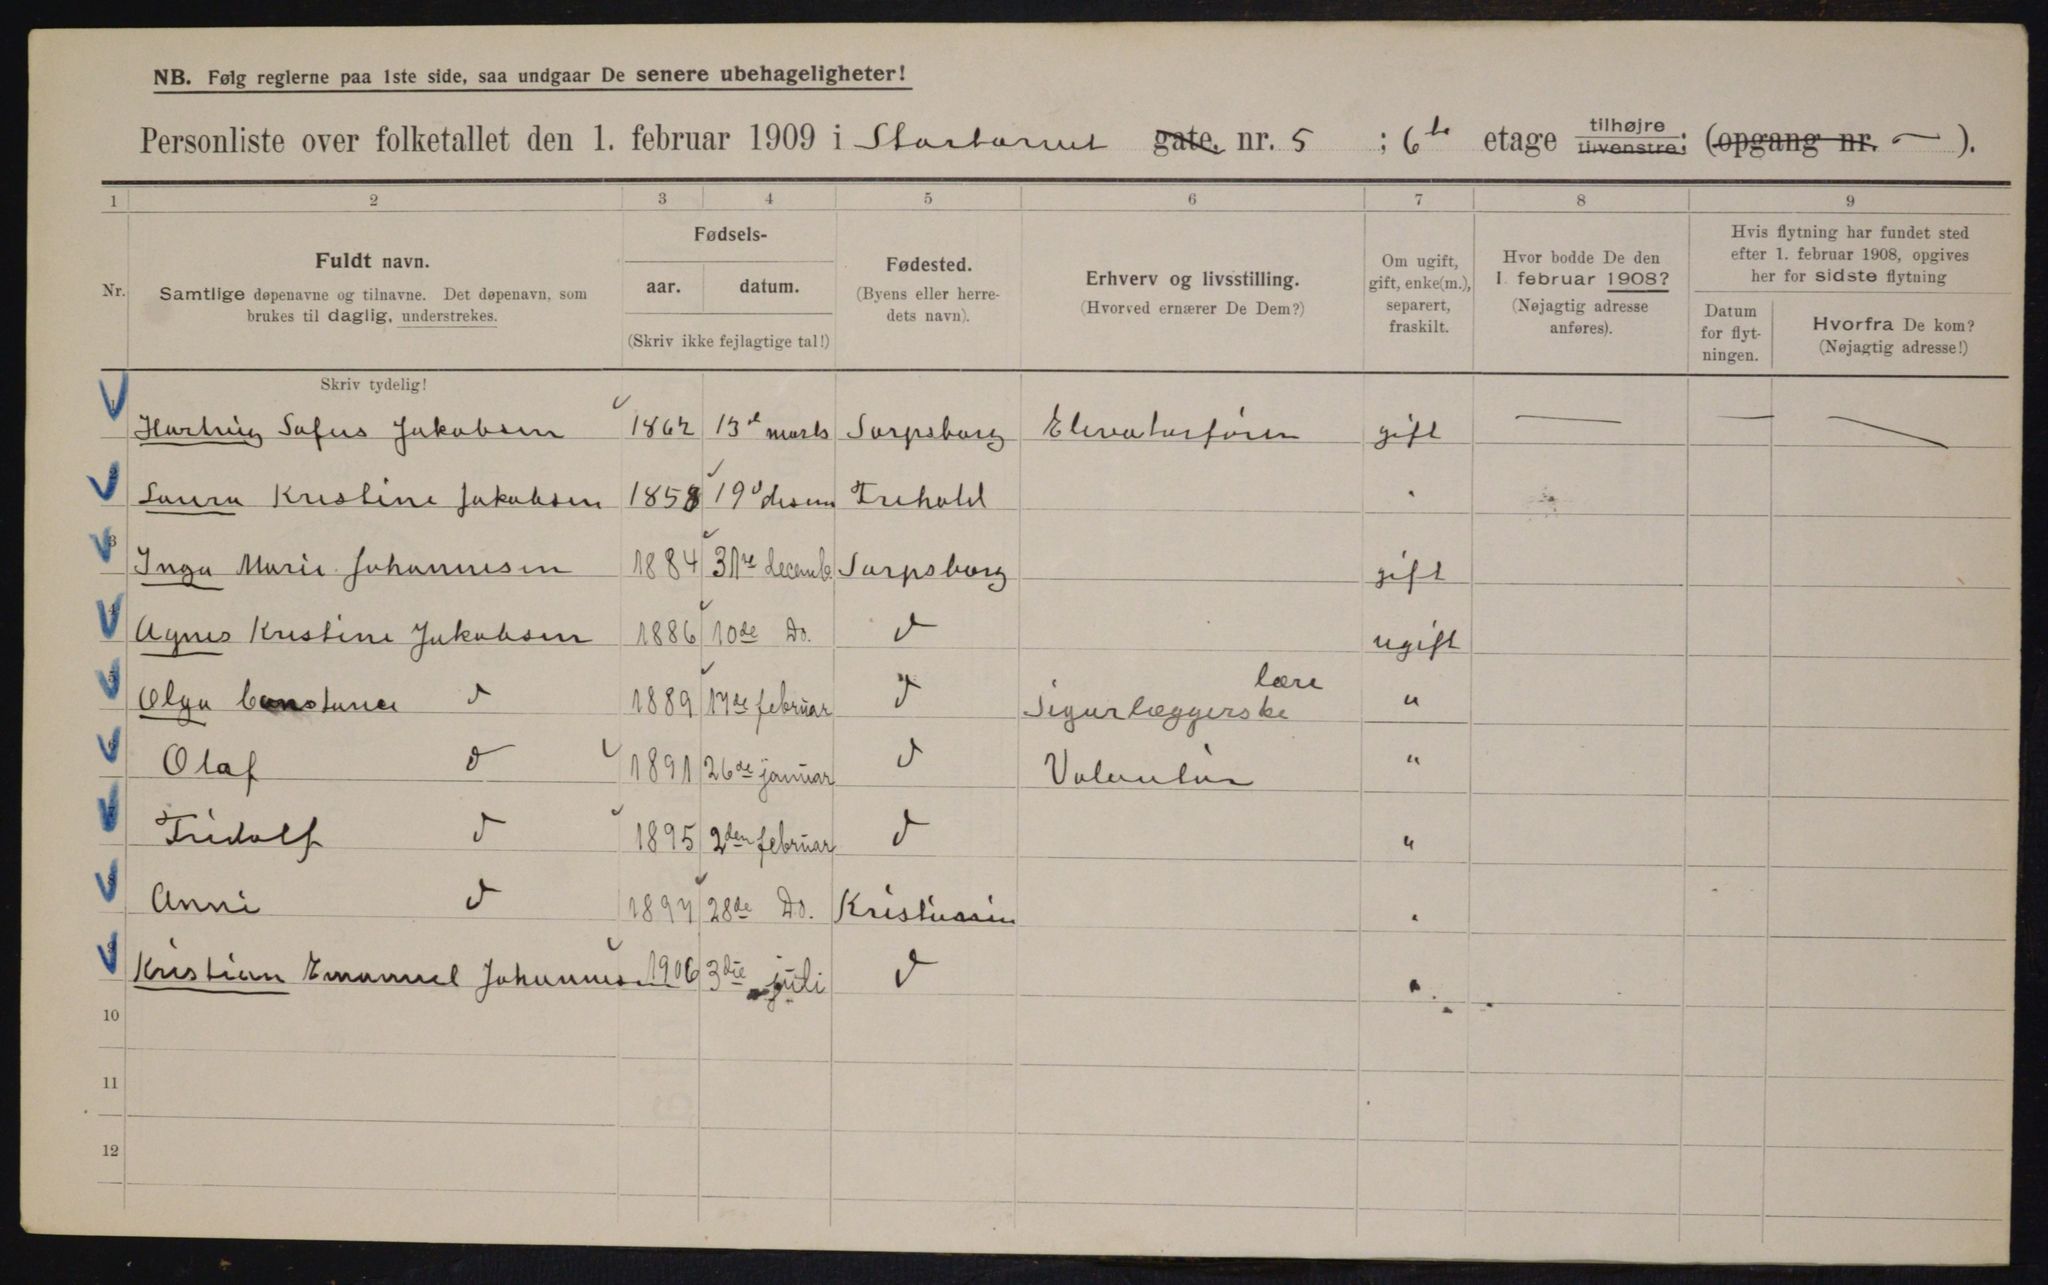 NB. Følg reglerne paa 1ste side, saa undgaar De senere ubehageligheter!
Personliste over folketallet den 1. februar 1909 i Stortorvet gate. nr. 5 ; 6te etage tilhøjre tilvenstre; (opgang nr. — ).
1 2 3 4 5 6 7 8 9
Nr.
Fuldt navn.
Samtlige døpenavne og tilnavne. Det døpenavn, som
brukes til daglig, understrekes.
Fødsels-
aar. datum.
(Skriv ikke fejlagtige tal!)
Fødested.
(Byens eller herre-
dets navn).
Erhverv og livsstilling.
(Hvorved ernærer De Dem?)
Om ugift,
gift, enke(m.),
separert,
fraskilt.
Hvor bodde De den
1. februar 1908?
(Nøjagtig adresse
anføres).
Hvis flytning har fundet sted
efter 1. februar 1908, opgives
her for sidste flytning
Datum
for flyt-
ningen.
Hvorfra De kom?
(Nøjagtig adresse!)
Skriv tydelig!
1 Hartvig Sofus Jakobsen 1862 13d marts Sarpsborg Elevatorfører gift — — —
2 Laura Kristine Jakobsen 1858 19d desem Frehald "
3 Inga Marie Johannesen 1884 31te decemb. Sarpsborg gift
4 Agnes Kristine Jakobsen 1886 10de Do. d ugift
5 Olga Constance d 1889 17de februar d Sigarlæggerske lære "
6 Olaf d 1891 26de januar d Volontør "
7 Fridolf d 1895 2den februar d "
8 Anni d 1897 28de Do. Kristiania "
9 Kristian Emanuel Johannesen 1906 3die juli d "
10
11
12